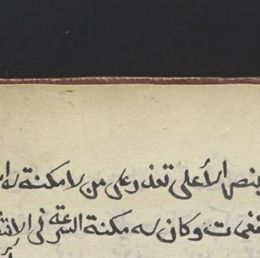 بنص الأعلى تعذر على من لا مكنة له ا
نغمات وكان له مكنة السرعة في الانتـ